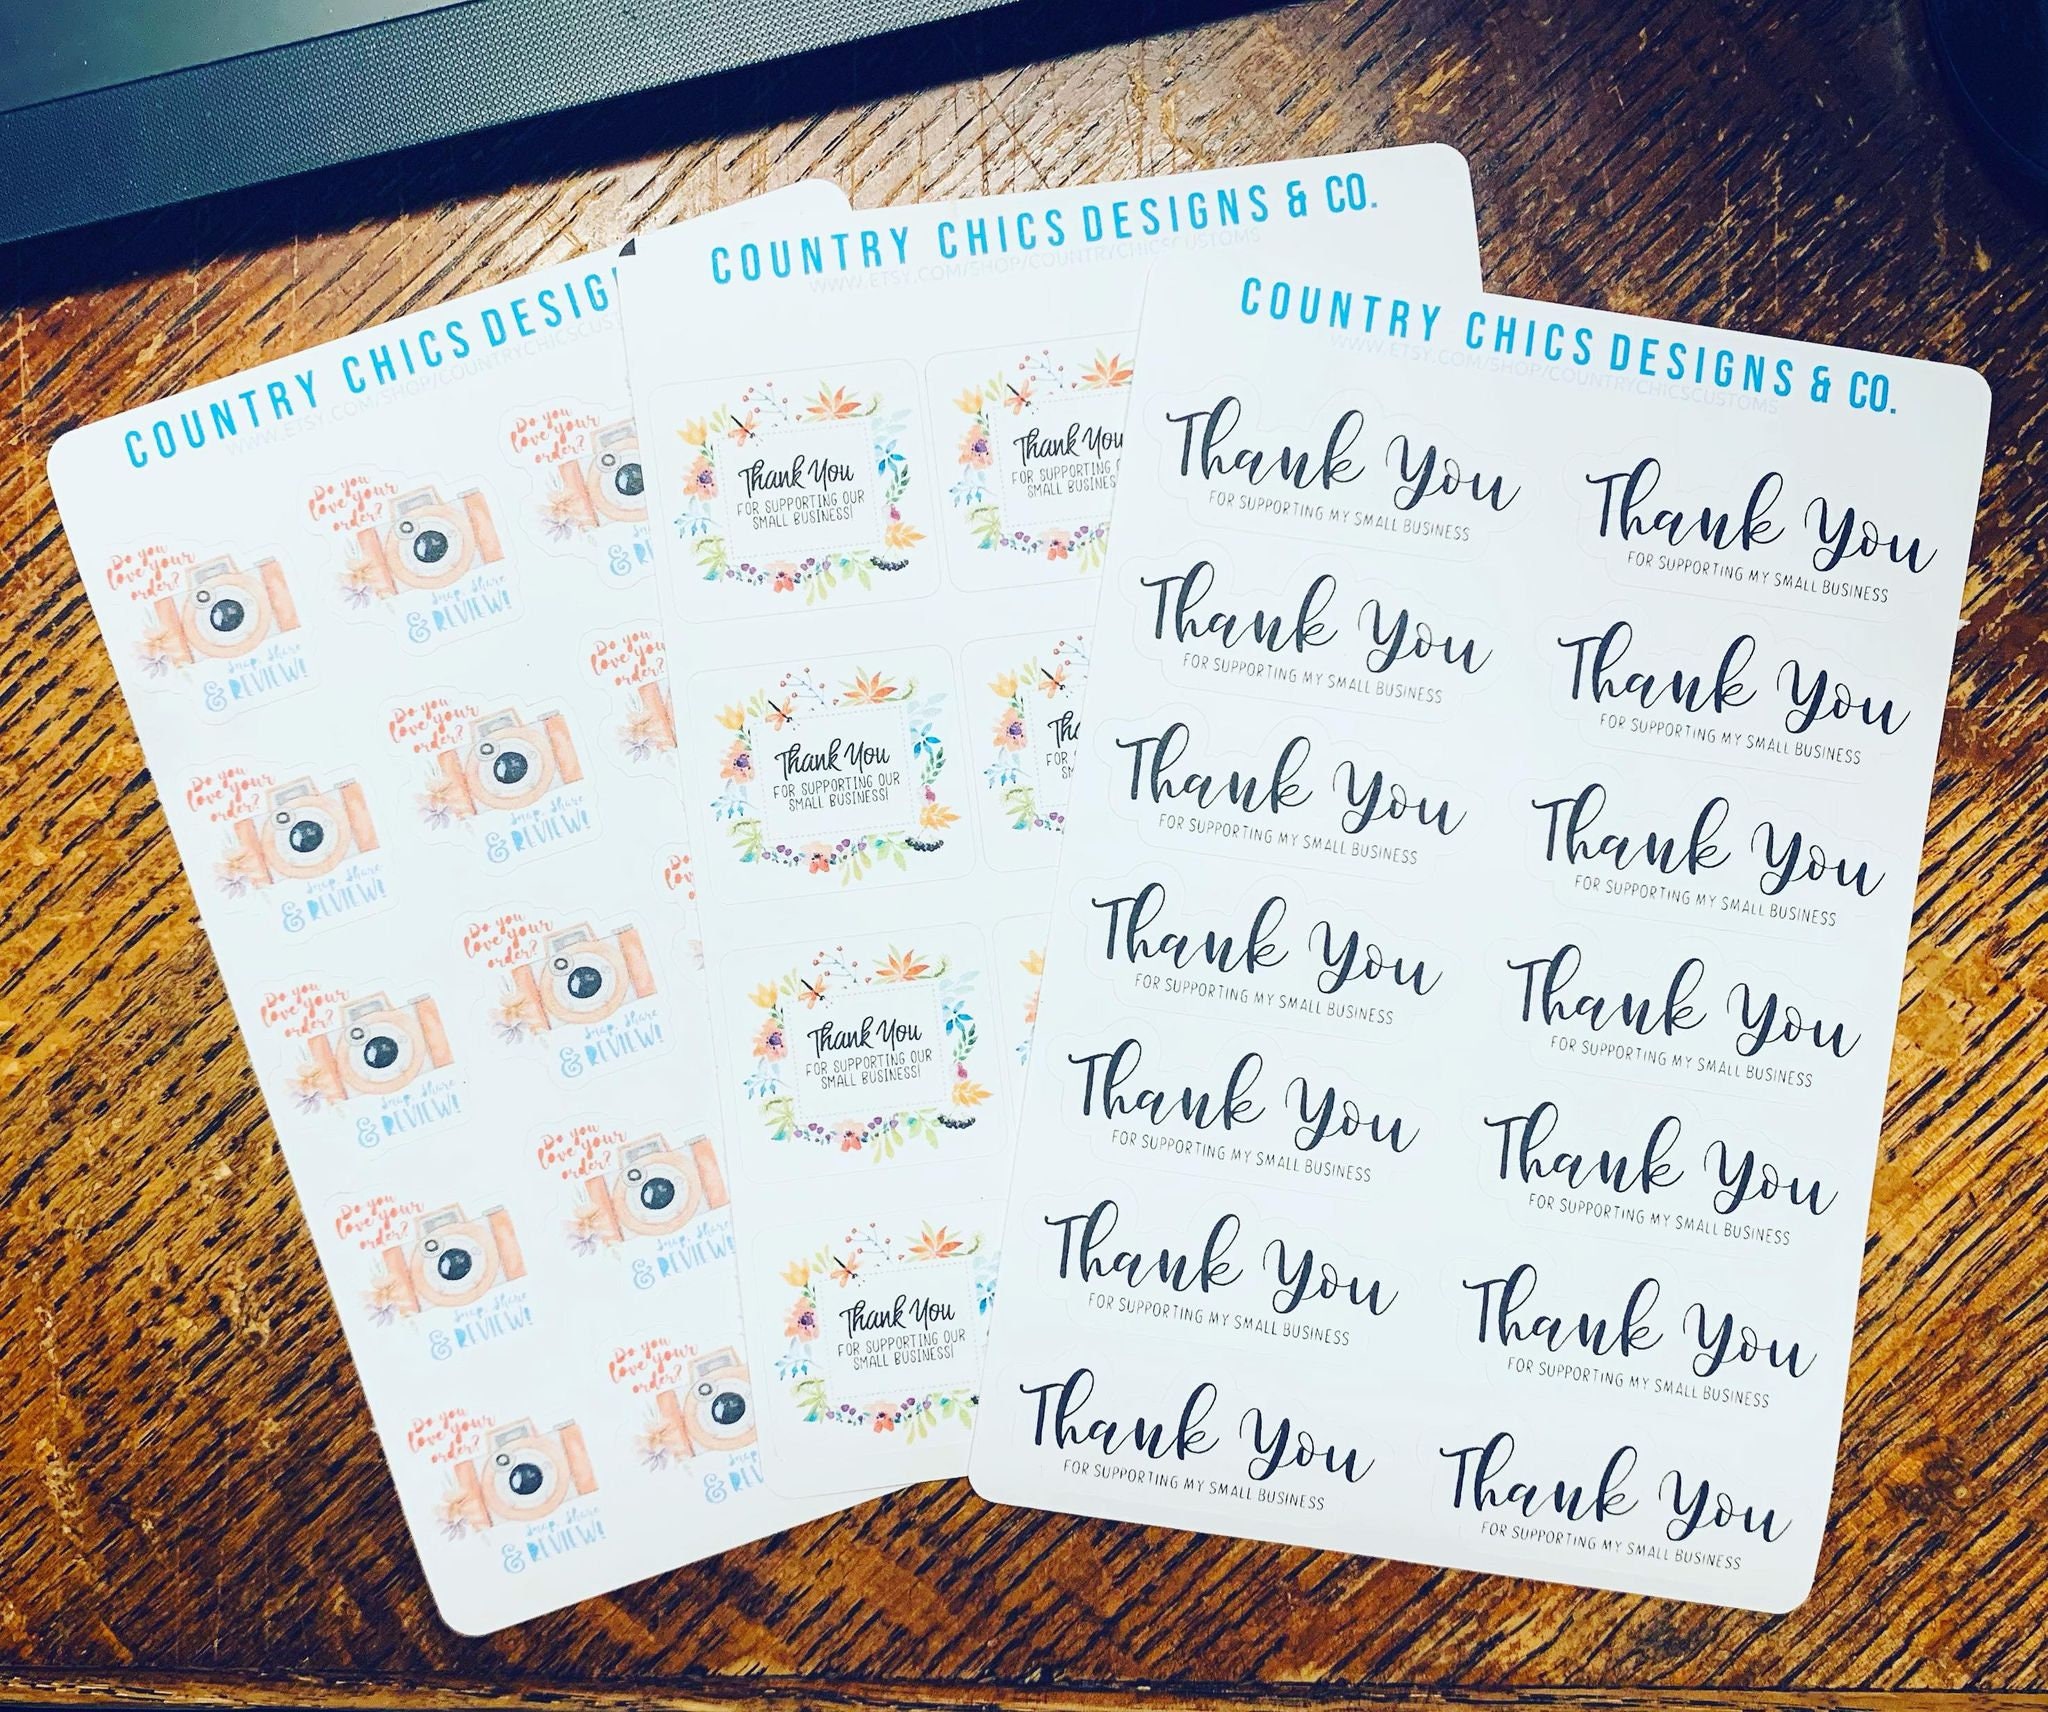 COUNTRY CHICS DESIG
WWW.ETSY.COM/SHOP/COUNTRYCHICSCUS
Do you
love your
order?
Snap, Share
& REVIEW!
Do you
love your
order?
Snap, Share
& REVIEW!
Do you
love your
order?
&
Do you
love your
order?
Snap, Share
& REVIEW!
Do you
love your
order?
Snap, Share
& REVIEW!
Do you
love your
Do you
love your
order?
Snap, Share
& REVIEW!
Do you
love your
order?
Snap, Share
& REVIEW!
Do you
love your
order?
Snap, Share
& REVIEW!
Do you
love your
order?
Snap, Share
& REVIEW!
Do you
love your
order?
Snap, Share
& REVIEW!
Do you
love your
order?
& REV
COUNTRY CHICS DESIGNS & CO.
WWW.ETSY.COM/SHOP/COUNTRYCHICSCUSTOMS
Thank You
FOR SUPPORTING OUR
SMALL BUSINESS!
Thank You
FOR SUPPORTING
SMALL BUSINESS
Thank You
FOR SUPPORTING OUR
SMALL BUSINESS!
Thank You
FOR SUPPORTING OUR
SMALL BUSINESS!
Thank You
FOR SUPPORTING OUR
SMALL BUSINESS!
COUNTRY CHICS DESIGNS & CO.
WWW.ETSY.COM/SHOP/COUNTRYCHICSCUSTOMS
Thank You
FOR SUPPORTING MY SMALL BUSINESS
Thank You
FOR SUPPORTING MY SMALL BUSINESS
Thank You
FOR SUPPORTING MY SMALL BUSINESS
Thank You
FOR SUPPORTING MY SMALL BUSINESS
Thank You
FOR SUPPORTING MY SMALL BUSINESS
Thank You
FOR SUPPORTING MY SMALL BUSINESS
Thank You
FOR SUPPORTING MY SMALL BUSINESS
Thank You
FOR SUPPORTING MY SMALL BUSINESS
Thank You
FOR SUPPORTING MY SMALL BUSINESS
Thank You
FOR SUPPORTING MY SMALL BUSINESS
Thank You
FOR SUPPORTING MY SMALL BUSINESS
Thank You
FOR SUPPORTING MY SMALL BUSINESS
Thank You
FOR SUPPORTING MY SMALL BUSINESS
Thank You
FOR SUPPORTING MY SMALL BUSINESS